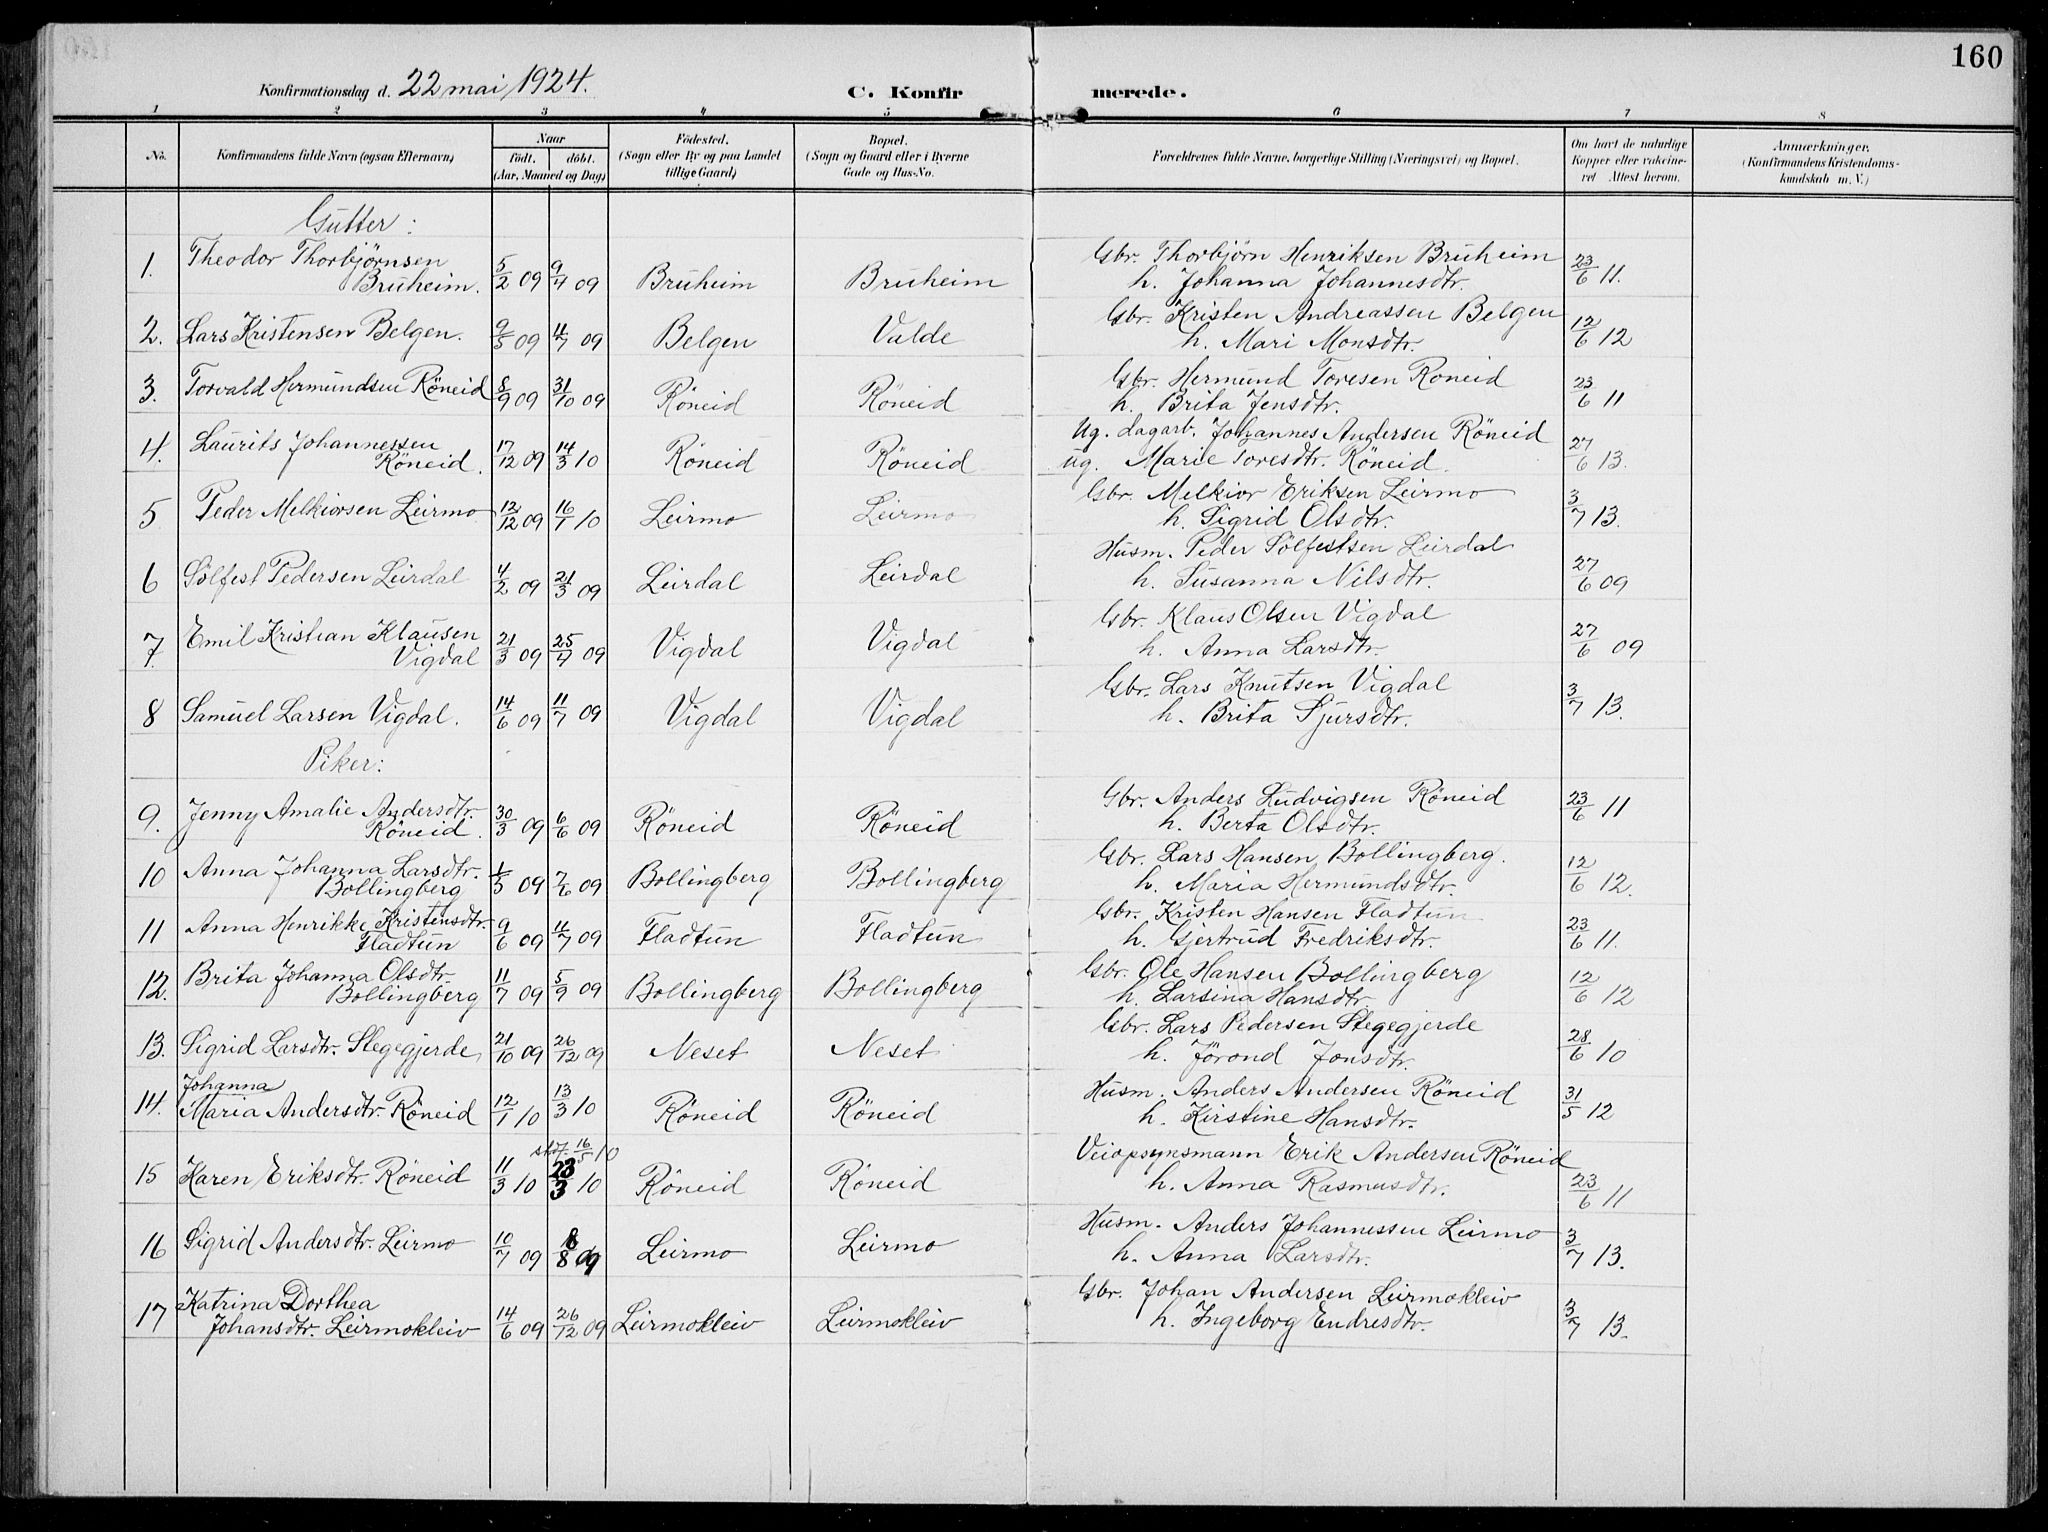 160
Konfirmationsdag d. 22 mai 1924.
C. Konfirmerede.
1 2 3 4 5 6 7 8
No. Konfirmandens fulde Navn (ogsaa Efternavn) Naar født. døbt. (Aar, Maaned og Dag) Fødested. (Sogn eller By og paa Landet tillige Gaard) Bopæl. (Sogn og Gaard eller i Byerne Gade og Hus-No. Forældrenes fulde Navne, borgerlige Stilling (Næringsvei) og Bopæl. Om havt de naturlige Kopper eller vakcineret Attest herom. Anmærkninger. (Konfirmandens Kristendomskundskab m. V.)
Gutter:
1. Theodor Thorbjørnsen Bruheim. 5/2 09 9/4 09 Bruheim Bruheim Gbr. Thorbjørn Henriksen Bruheim h. Johanna Johannesdtr. 23/6 11.
2. Lars Kristensen Belgen. 9/5 09 4/7 09 Belgen Valde Gbr. Kristen Andreassen Belgen h. Mari Monsdtr. 12/6 12
3. Torvald Hermundsen Röneid 8/9 09 31/10 09 Röneid Röneid Gbr. Hermund Toresen Roneid h. Brita Jensdtr. 23/6 11
4. Laurits Johannessen Röneid. 17/12 09 14/3 10 Röneid Röneid Ug. dagarb. Johannes Andersen Röneid ug. Marie Toresdtr. Röneid. 27/6 13.
5 Peder Melkiorsen Leirmo 12/12 09 16/1 10 Leirmo Leirmo Gbr. Melkior Eriksen Leirmo h. Sigrid Olsdtr. 3/7 13.
6 Sölfest Pedersen Leirdal 4/2 09 21/3 09 Leirdal Leirdal Husm. Peder Sölfestsen Leirdal h. Susanna Nilsdtr. 27/6 09
7. Emil Kristian Klausen Vigdal 21/3 09 25/4 09 Vigdal Vigdal Gbr. Klaus Olsen Vigdal h. Anna Larsdtr. 27/6 09
8 Samuel Larsen Vigdal. 14/6 09 11/7 09 Vigdal Vigdal Gbr. Lars Knutsen Vigdal h. Brita Sjursdtr. 3/7 13.
Piker:
9. Jenny Amalie Andersdtr. Röneid. 30/3 09 6/6 09 Röneid Röneid Gbr. Anders Ludvigsen Röneid h. Berta Olsdtr. 23/6 11
10 Anna Johanna Larsdtr. Bollingberg 1/5 09 7/6 09 Bollingberg Bollingberg Gbr. Lars Hansen Bollingberg. h. Maria Hermundsdtr. 12/6 12.
11 Anna Henrikke Kristensdtr. Fladtun 9/6 09 11/7 09 Fladtun Fladtun Gbr. Kristen Hansen Fladtun h. Gjertrud Fredriksdtr. 23/6 11.
12. Brita Johanna Olsdtr. Bollingberg 11/7 09 5/9 09 Bollingberg Bollingberg Gbr. Ole Hansen Bollingberg h. Larsina Hansdtr. 12/6 12
13. Sigrid Larsdtr. Stegegjerde 21/10 09 26/12 09 Neset Neset Gbr. Lars Pedersen Stegegjerde h. Jörond Jonsdtr. 28/6 10
14. Johanna Maria Andersdtr. Röneid 12/1 10 13/3 10 Röneid Röneid Husm. Anders Andersen Röneid h. Kirstine Hansdtr. 31/5 12
15 Karen Eriksdtr. Röneid 11/3 10 23/3 10 16/5 10 Röneid Röneid Veiopsynsmann Erik Andersen Röneid h. Anna Rasmusdtr. 23/6 11
16 Sigrid Andersdtr. Leirmo 10/7 09 8/8 09 Leirmo Leirmo Husm. Anders Johannessen Leirmo h. Anna Larsdtr. 3/7 13.
17 Katrina Dorthea Johansdtr. Leirmokleiv 14/6 09 26/12 09 Leirmokleiv Leirmokleiv Gbr. Johan Andersen Leirmokleiv h. Ingeborg Endresdtr. 3/7 13.